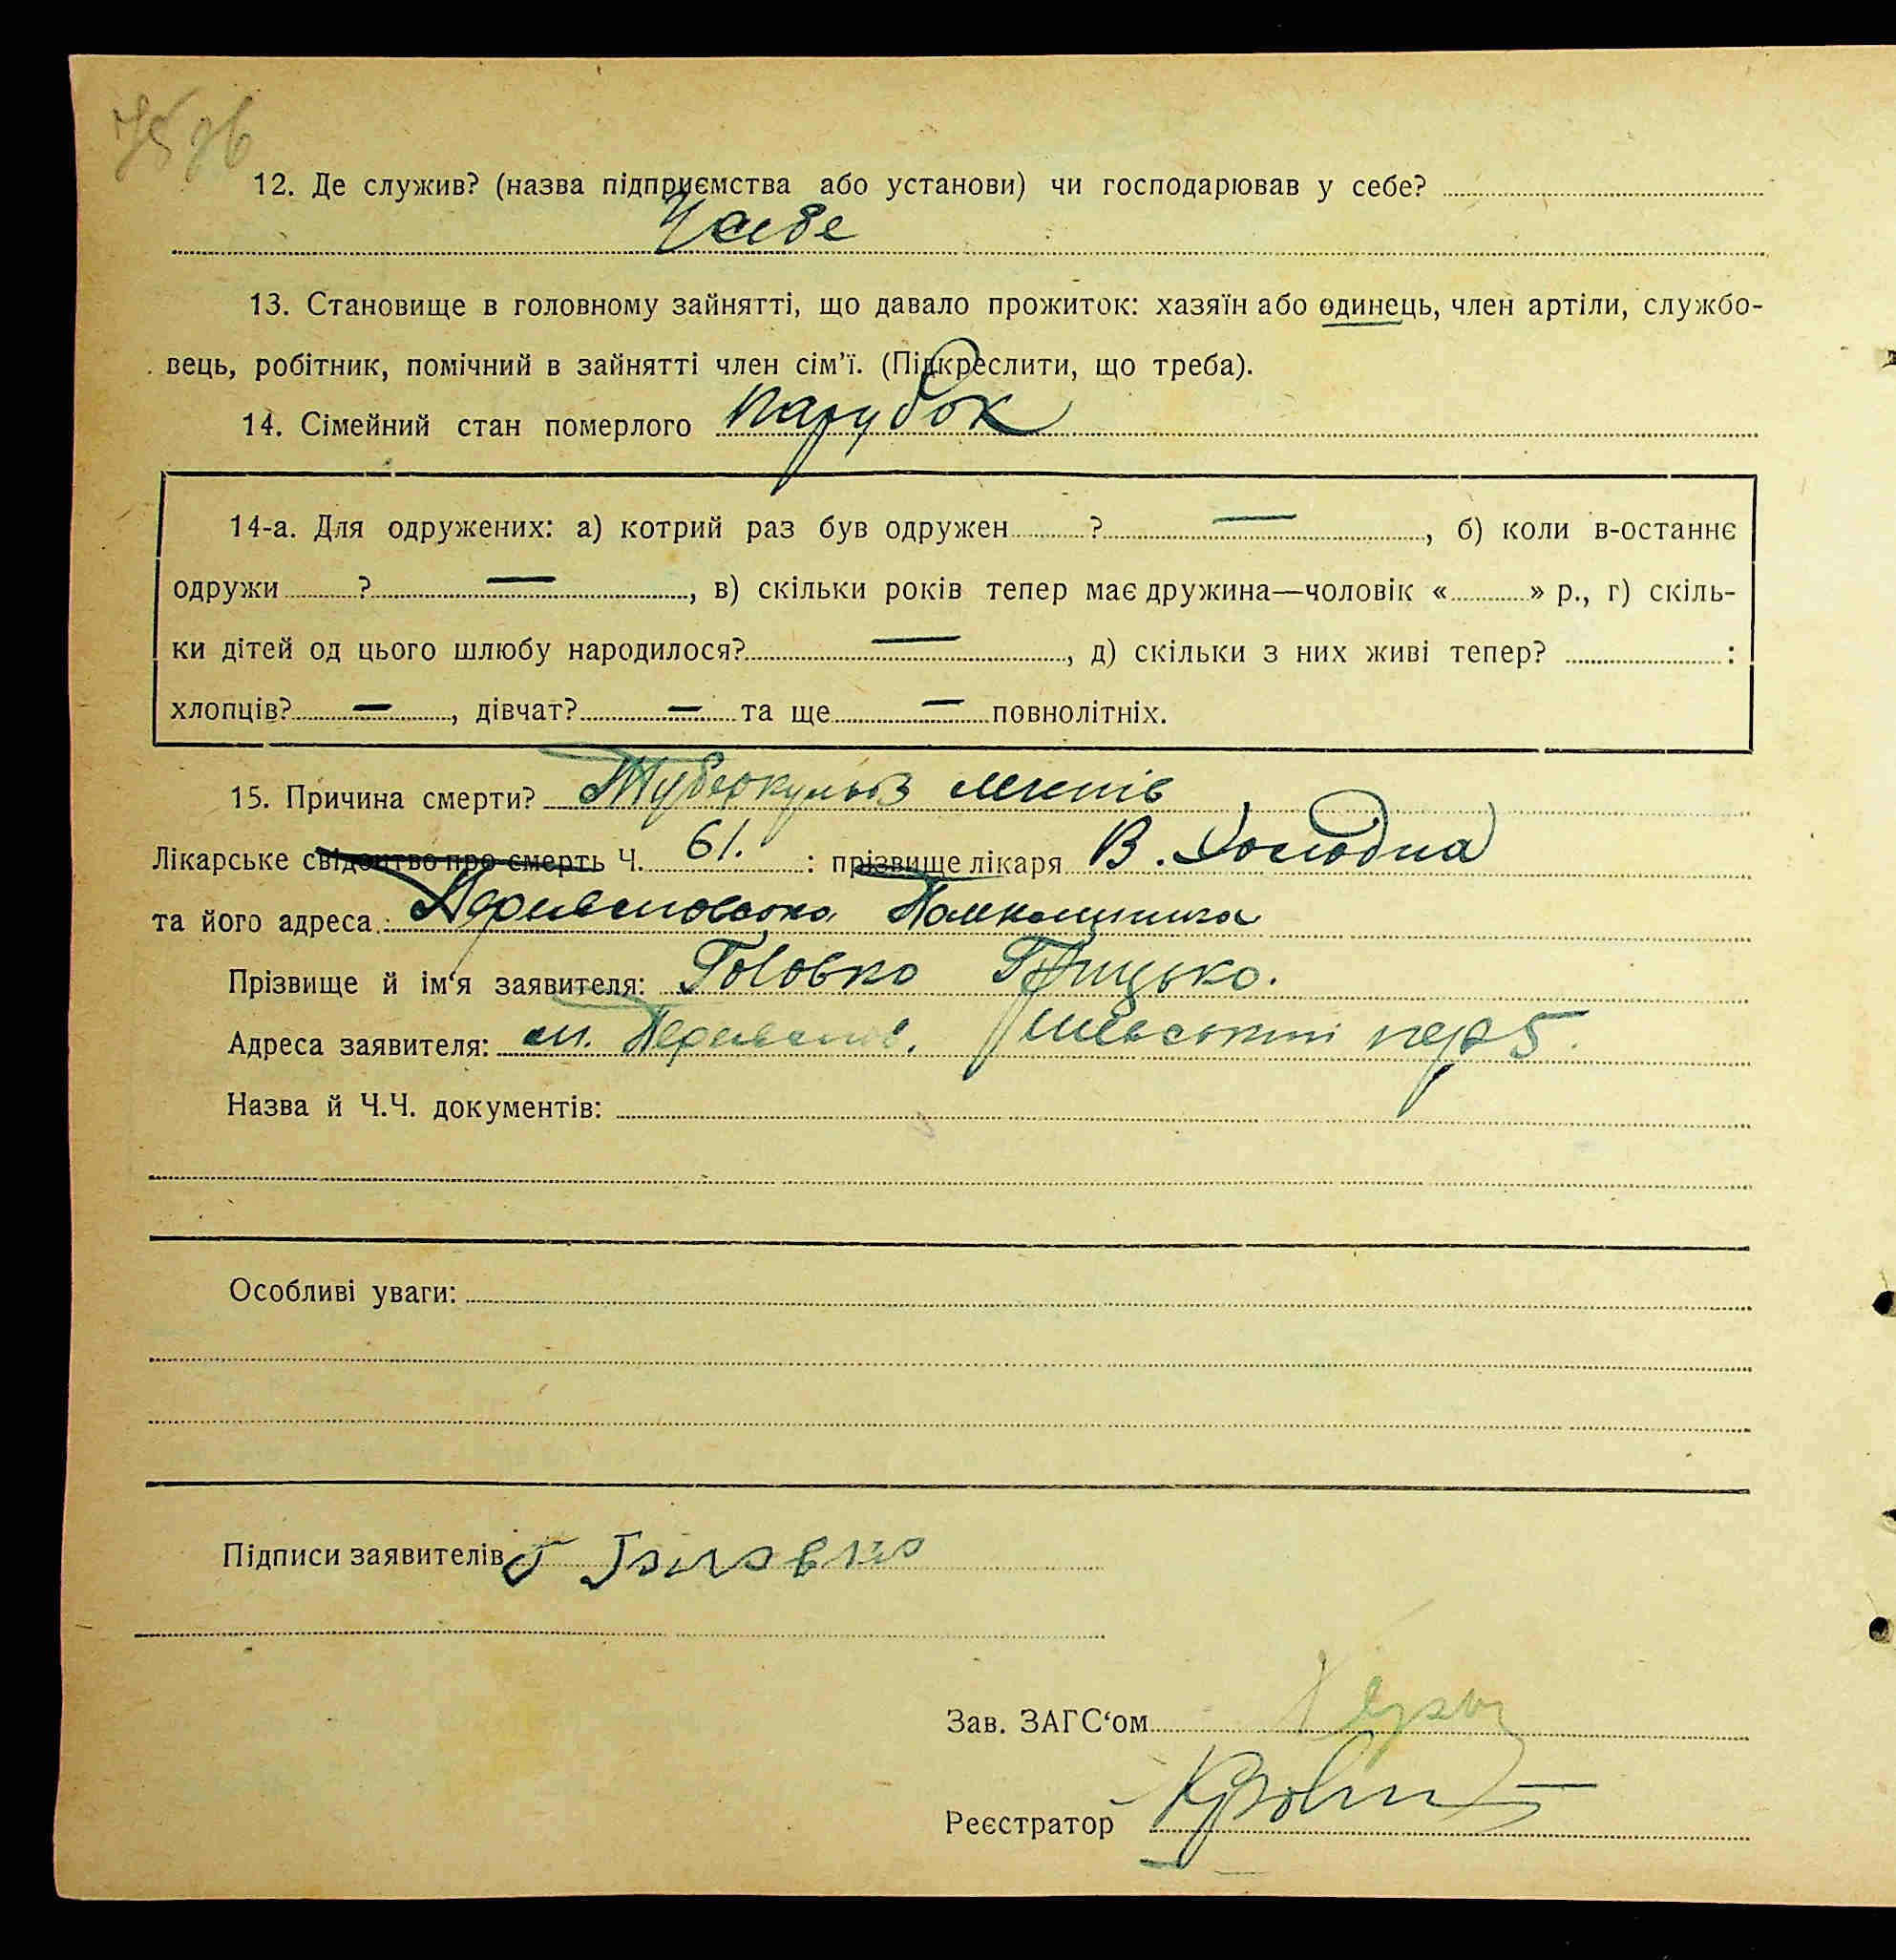 12. Де служив? (назва підприємства або установи) чи господарював у себе?
У себе
13. Становище в головному зайнятті, що давало прожиток: хазяїн або одинець, член артіли, службо-
вець, робітник, помічний в зайнятті член сім'ї. (Підкреслити, що треба).
14. Сімейний стан померлого парубок
14-а. Для одружених: а) котрий раз був одружен ? —, б) коли в-останнє
одружи ? —, в) скільки років тепер має дружина—чоловік « » р., г) скіль-
ки дітей од цього шлюбу народилося? —, д) скільки з них живі тепер? :
хлопців? —, дівчат? — та ще — повнолітніх.
15. Причина смерти? Туберкульоз легенів
Лікарське свідоцтво про смерть Ч. 61. : прізвище лікаря В. Холодна
та його адреса:
Прізвище й ім'я заявителя: Головко Грицько.
Адреса заявителя: м. пер 5.
Назва й Ч.Ч. документів:
Особливі уваги:
Підписи заявителів Г Головко
Зав. ЗАГС'ом
Реєстратор